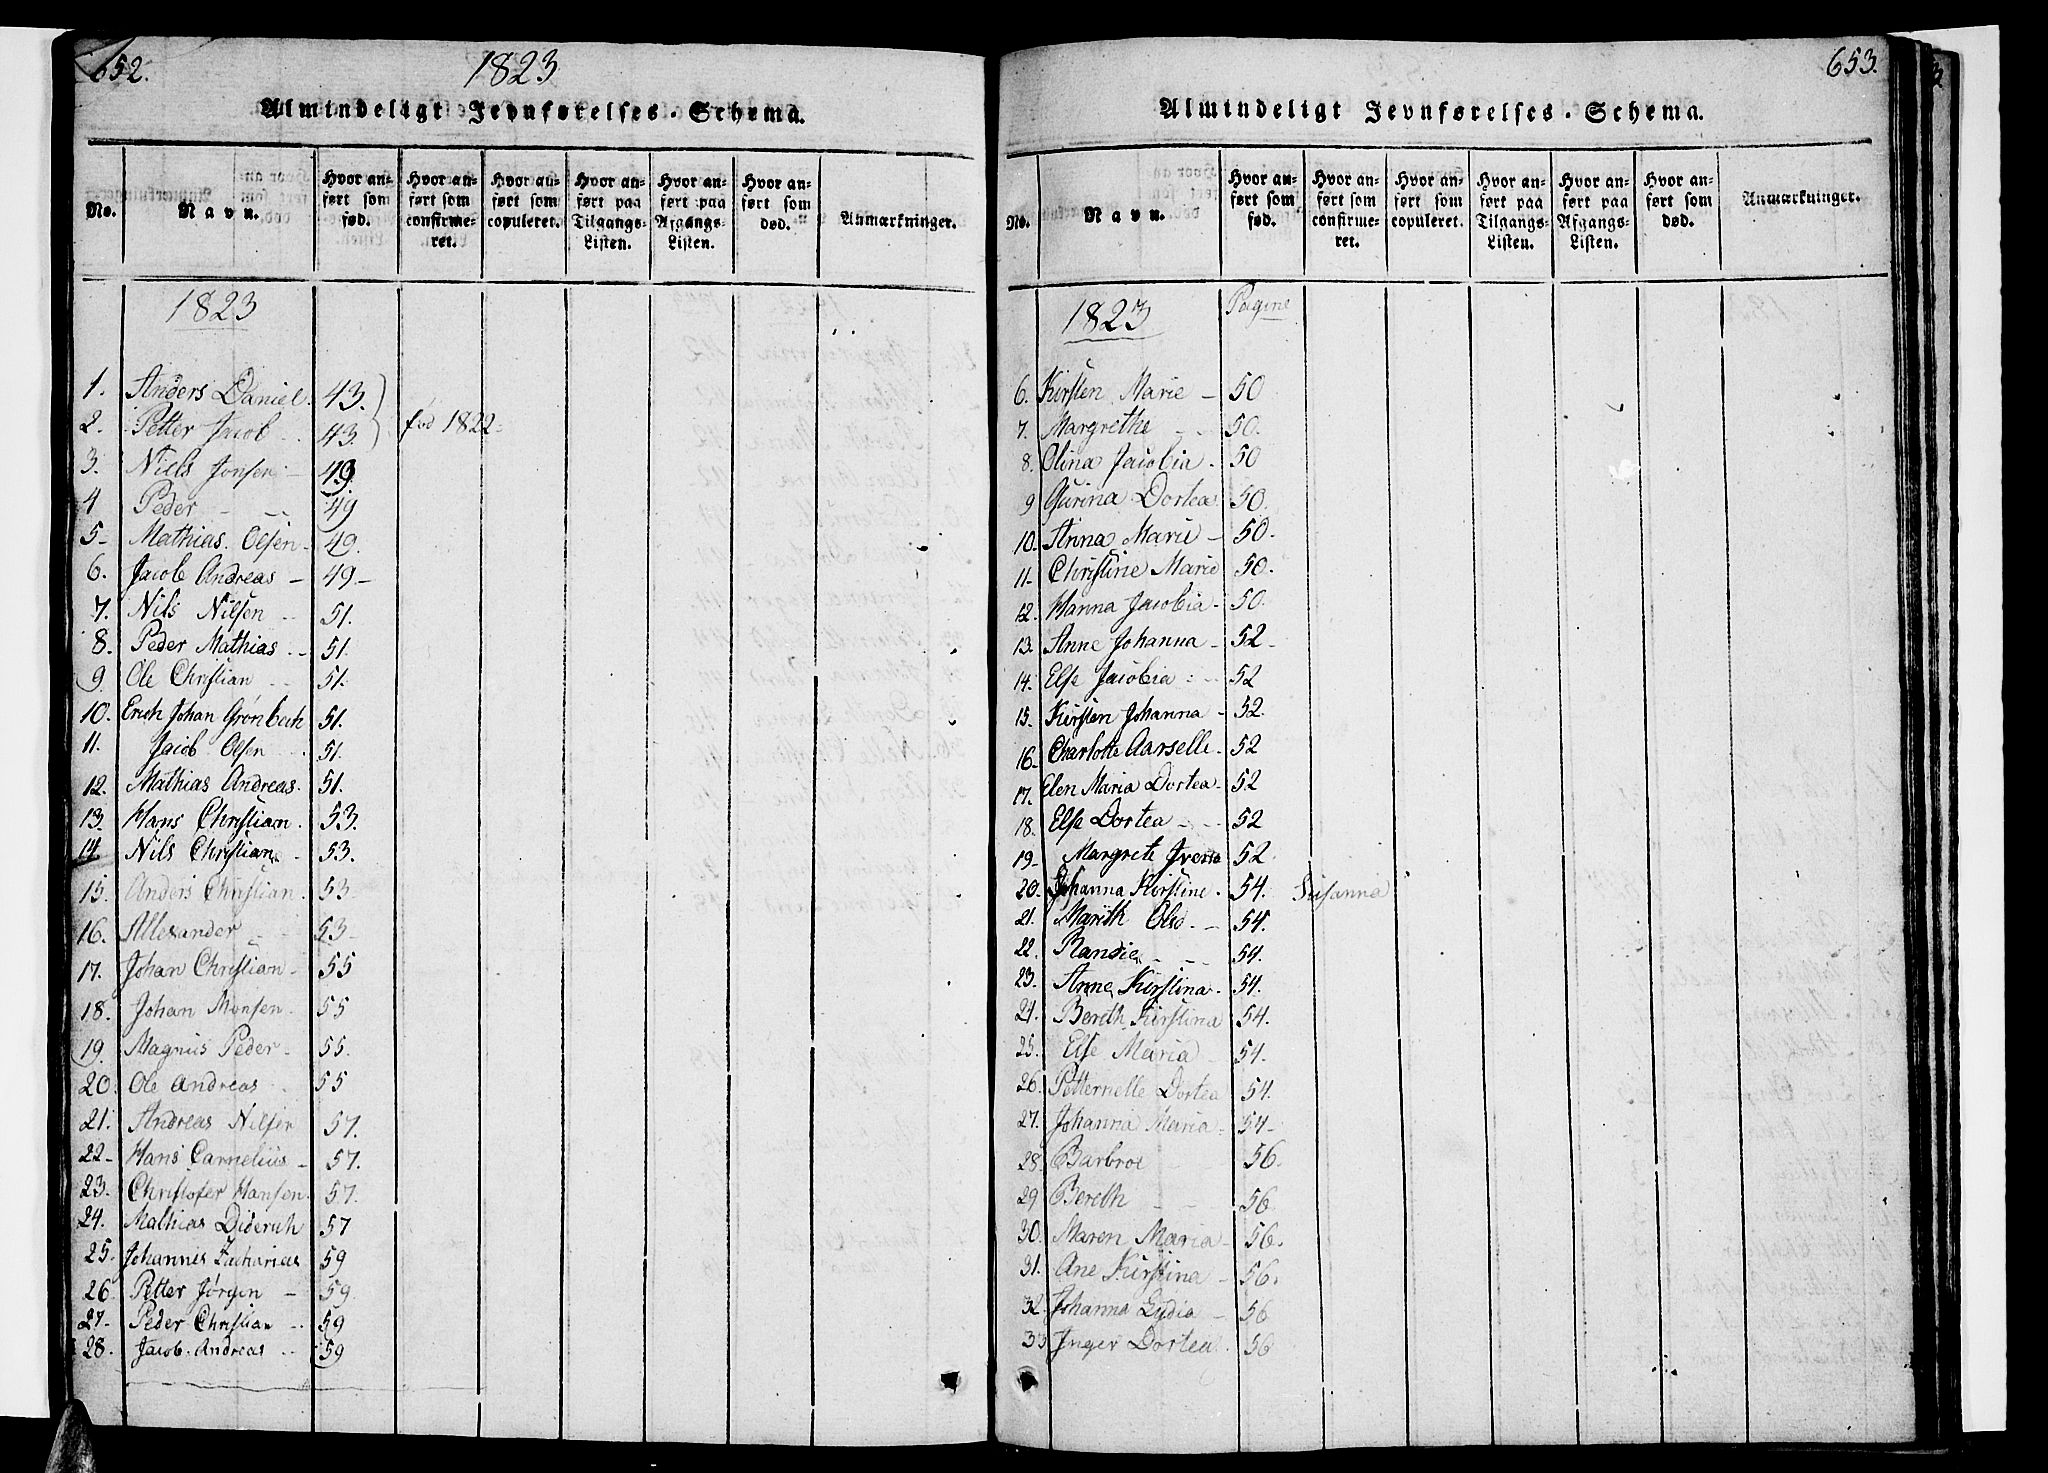 652.
1823
Almindeligt Jevnførelses-Schema.
No.
Navn.
Hvor an-
ført som
fød.
Hvor an-
ført som
confirme-
ret.
Hvor an-
ført som
copuleret.
Hvor an-
ført paa
Tilgangs-
Listen.
Hvor an-
ført paa
Afgangs-
Listen.
Hvor an-
ført som
død.
Anmærkninger.
1823
1. Anders Daniel. 43.
2. Petter Jacob.. 43. fød 1822.
3. Niels Jonsen - 49
4 Peder - -- 49
5- Mathias. Olsen- 49.
6. Jacob Andreas - 49-
7. Nils Nilsen -- 51.
8. Peder Mathias.. 51.
9. Ole Christian -- 51.
10. Erich Johan Grønbech 51.
11. Jacob Olsen ... 51.
12. Mathias Andreas. 51.
13. Hans Christian. 53.
14 Nils Christian. 53.
15. Anders Christian. 53
16. Allexander - - 53-
17. Johan Christian- 55
18. Johan Monsen- 55
19. Magnus Peder- 55.
20. Ole Andreas .. 55
21. Andreas Nilsen 57.
22- Hans Carnelius- 57.
23. Christofer Hansen. 57.
24. Mathias Diderich 57
25. Johannes Zacharias 59
26. Petter Jørgen - 59.
27- Peder Christian -. 59
28. Jacob. Andreas .. 59
653.
Almindeligt Jevnførelses-Schema.
No.
Navn.
Hvor an-
ført som
fød.
Hvor an-
ført som
confirme-
ret.
Hvor an-
ført som
copuleret.
Hvor an-
ført paa
Tilgangs-
Listen.
Hvor an-
ført paa
Afgangs-
Listen.
Hvor an-
ført som
død.
Anmærkninger.
1823 Pagine
6. Kirsten Marie - 50
7. Margrethe - - 50.
8. Olina Jacobia. 50
9 Gurina Dortea 50.
10. Anna Marie - 50.
11- Christine Marie 50.
12. Hanna Jacobia- 50.
13. Anne Johanna - 52-
14. Else Jacobia : - 52
15. Kirsten Johanna - 52.
16- Charlotte Aarselle. 52
17. Elen Maria Dortea- 52
18. Else Dortea - -- 52
19- Margrete Iverse 52.
20. Johanna Kirstine. 54. Susanna
21. Marith Olsd. - 54.
22. Randie - - 54.
23. Anne Kirstina. 54.
24. Bereth Kirstina 54.
25. Else Maria - 54.
26. Petternelle Dortea 54.
27. Johanna Maria. 54-
28. Barbroe - - 56.
29 Bereth - - 56
30. Maren Maria- 56.
31. Ane Kirstina - 56.
32. Johanna Lydia - 56
33 Inger Dortea. 56